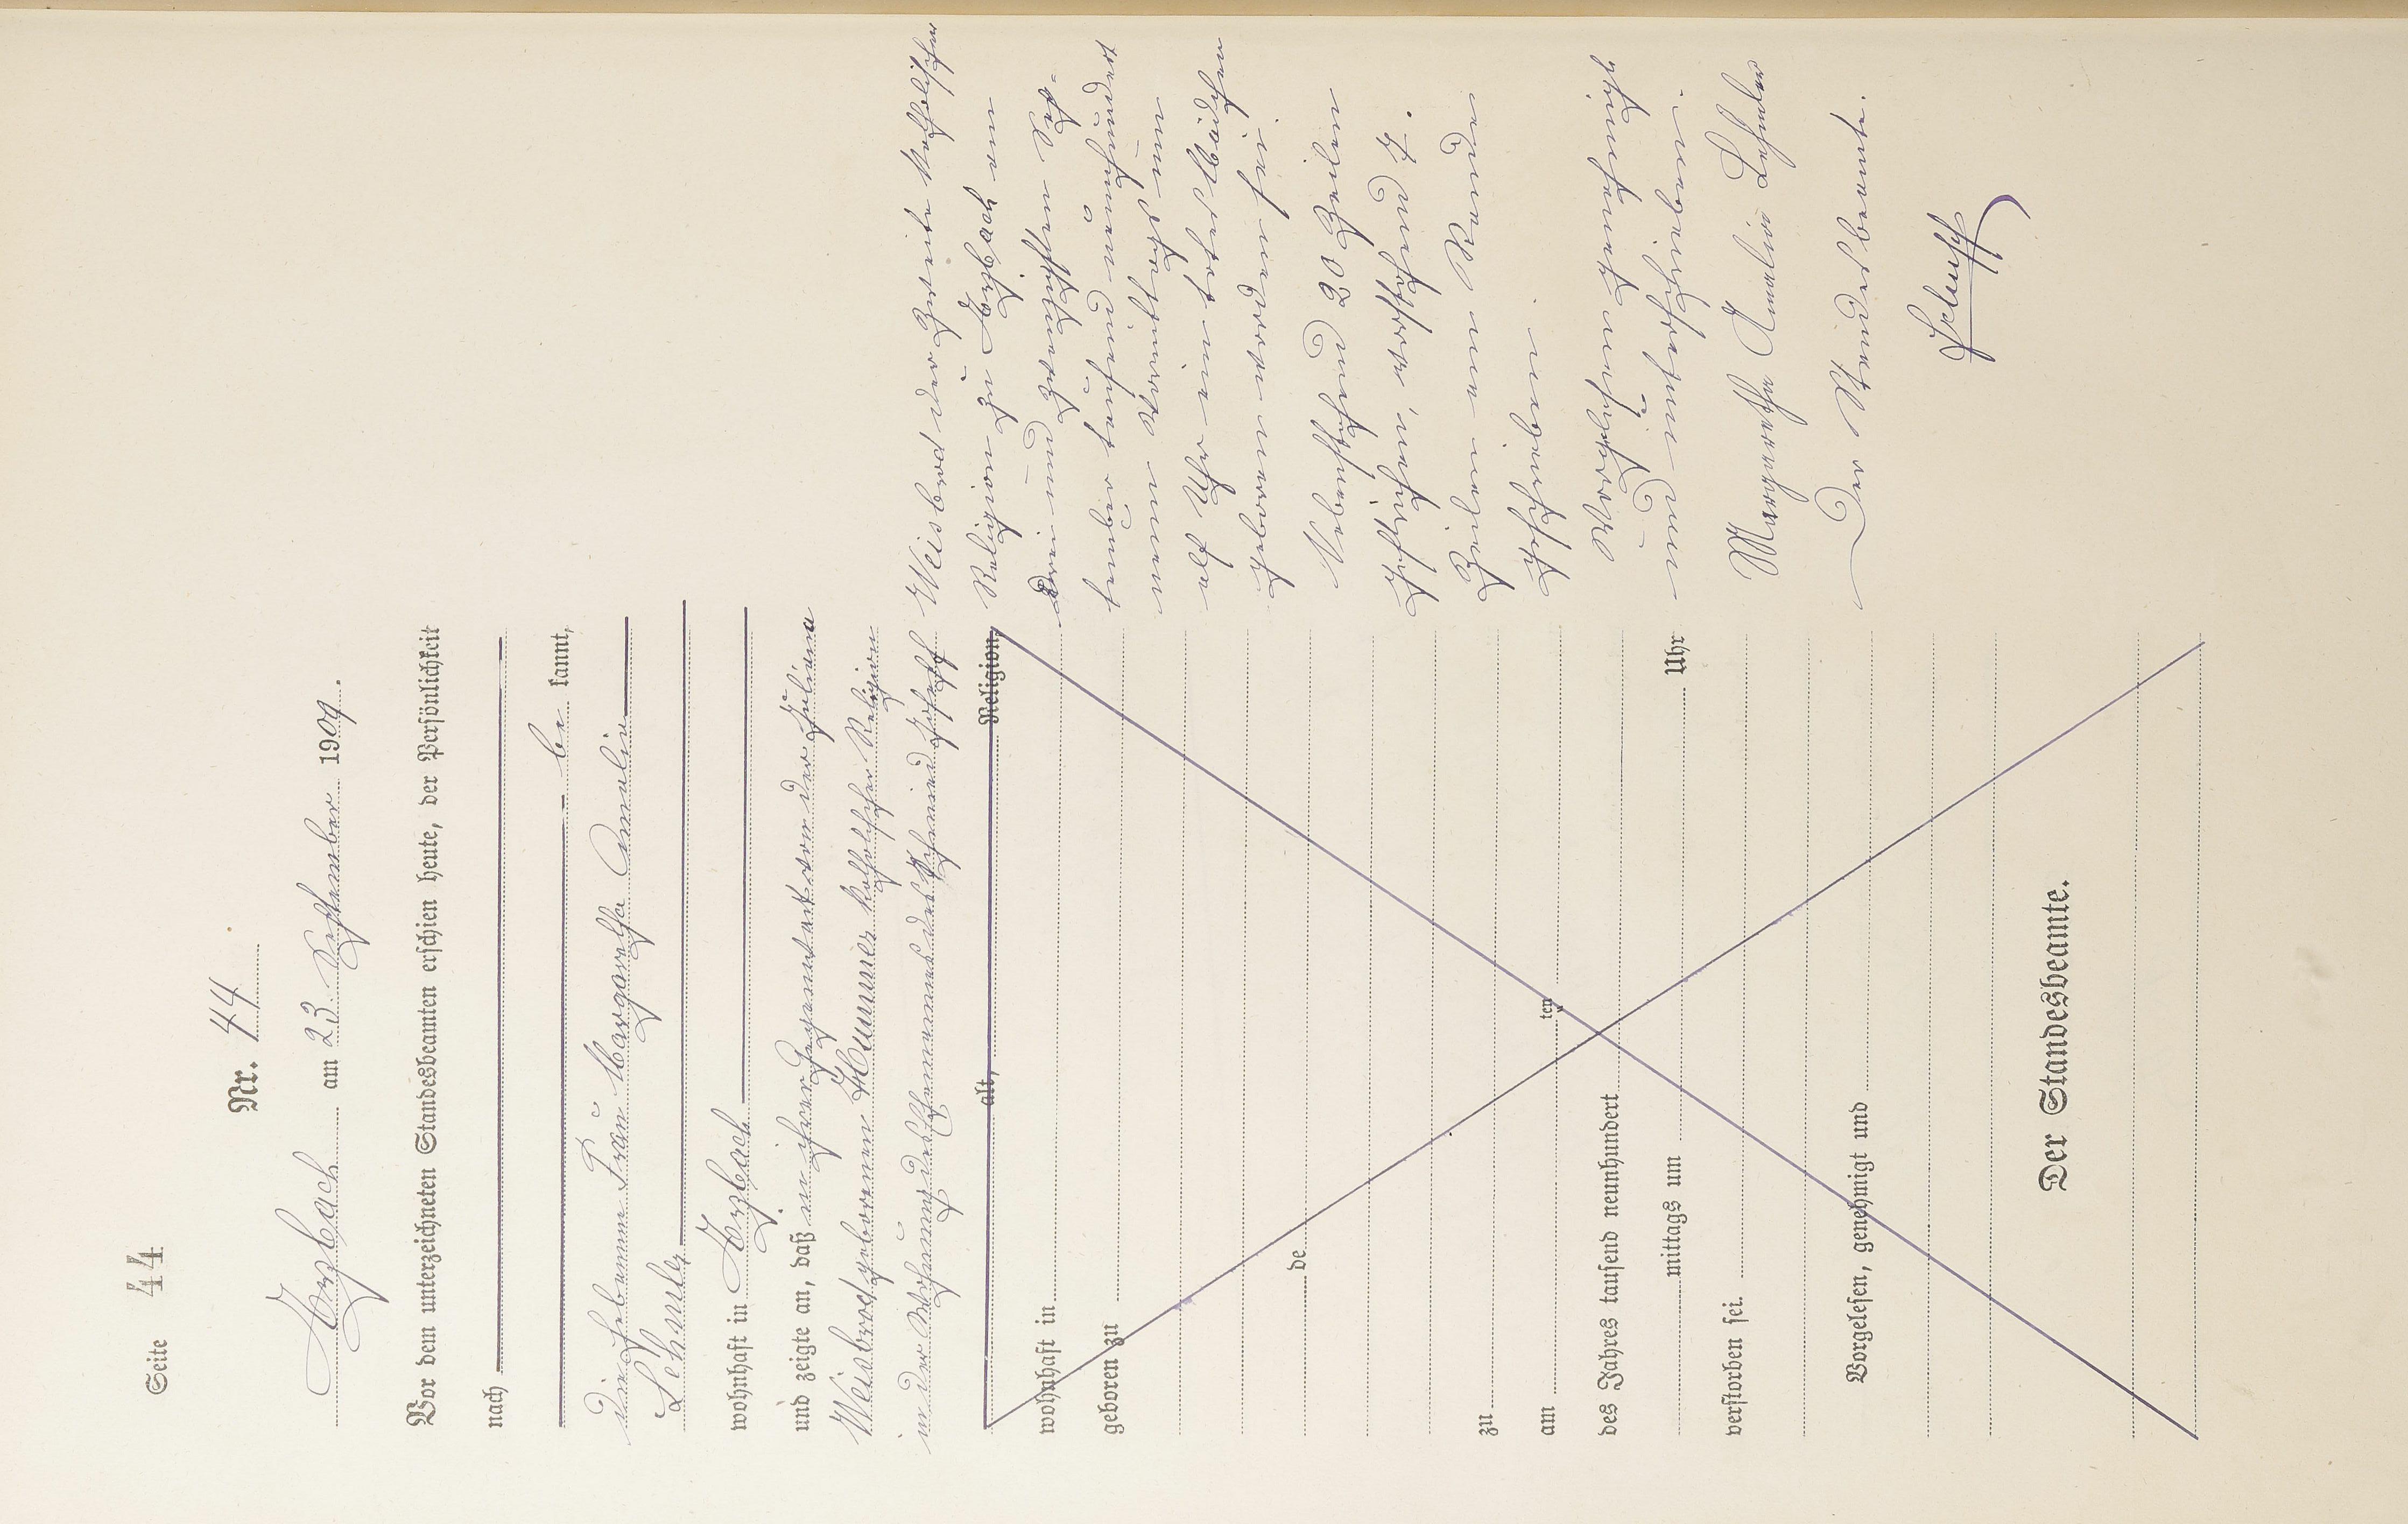 Seite 44
Nr. 44
Arzbach am 23. September 1909.
Vor dem unterzeichneten Standesbeamten erschien heute, der Persönlichkeit
nach
be kannt,
die Hebamme Frau Margaretha Amalie
Lehmler
wohnhaft in Arzbach
und zeigte an, daß in ihrer Gegenwart von der Juliana
Weisbrod geborenen Hummer katholischer Religion
in der Wohnung des Ehemannes des Schmied Joseph
alt, Religion,
wohnhaft in
geboren zu
de
zu
am ten
des Jahres tausend neunhundert
mittags um Uhr
verstorben sei.
Vorgelesen, genehmigt und
Der Standesbeamte.
Weisbrod der Zeit katholischer
Religion zu Arzbach am
drei und zwanzigsten Sep-
tember tausend neunhundert
neun Vormittags um
elf Uhr ein totes Mädchen
geboren worden sei.
Vorstehend 20 Zeilen
gestrichen, und 7
Zeilen am Rande
geschrieben.
Vorgelesen genehmigt
und unterschrieben
Margaretha Amalia Lehmler
Der Standesbeamte.